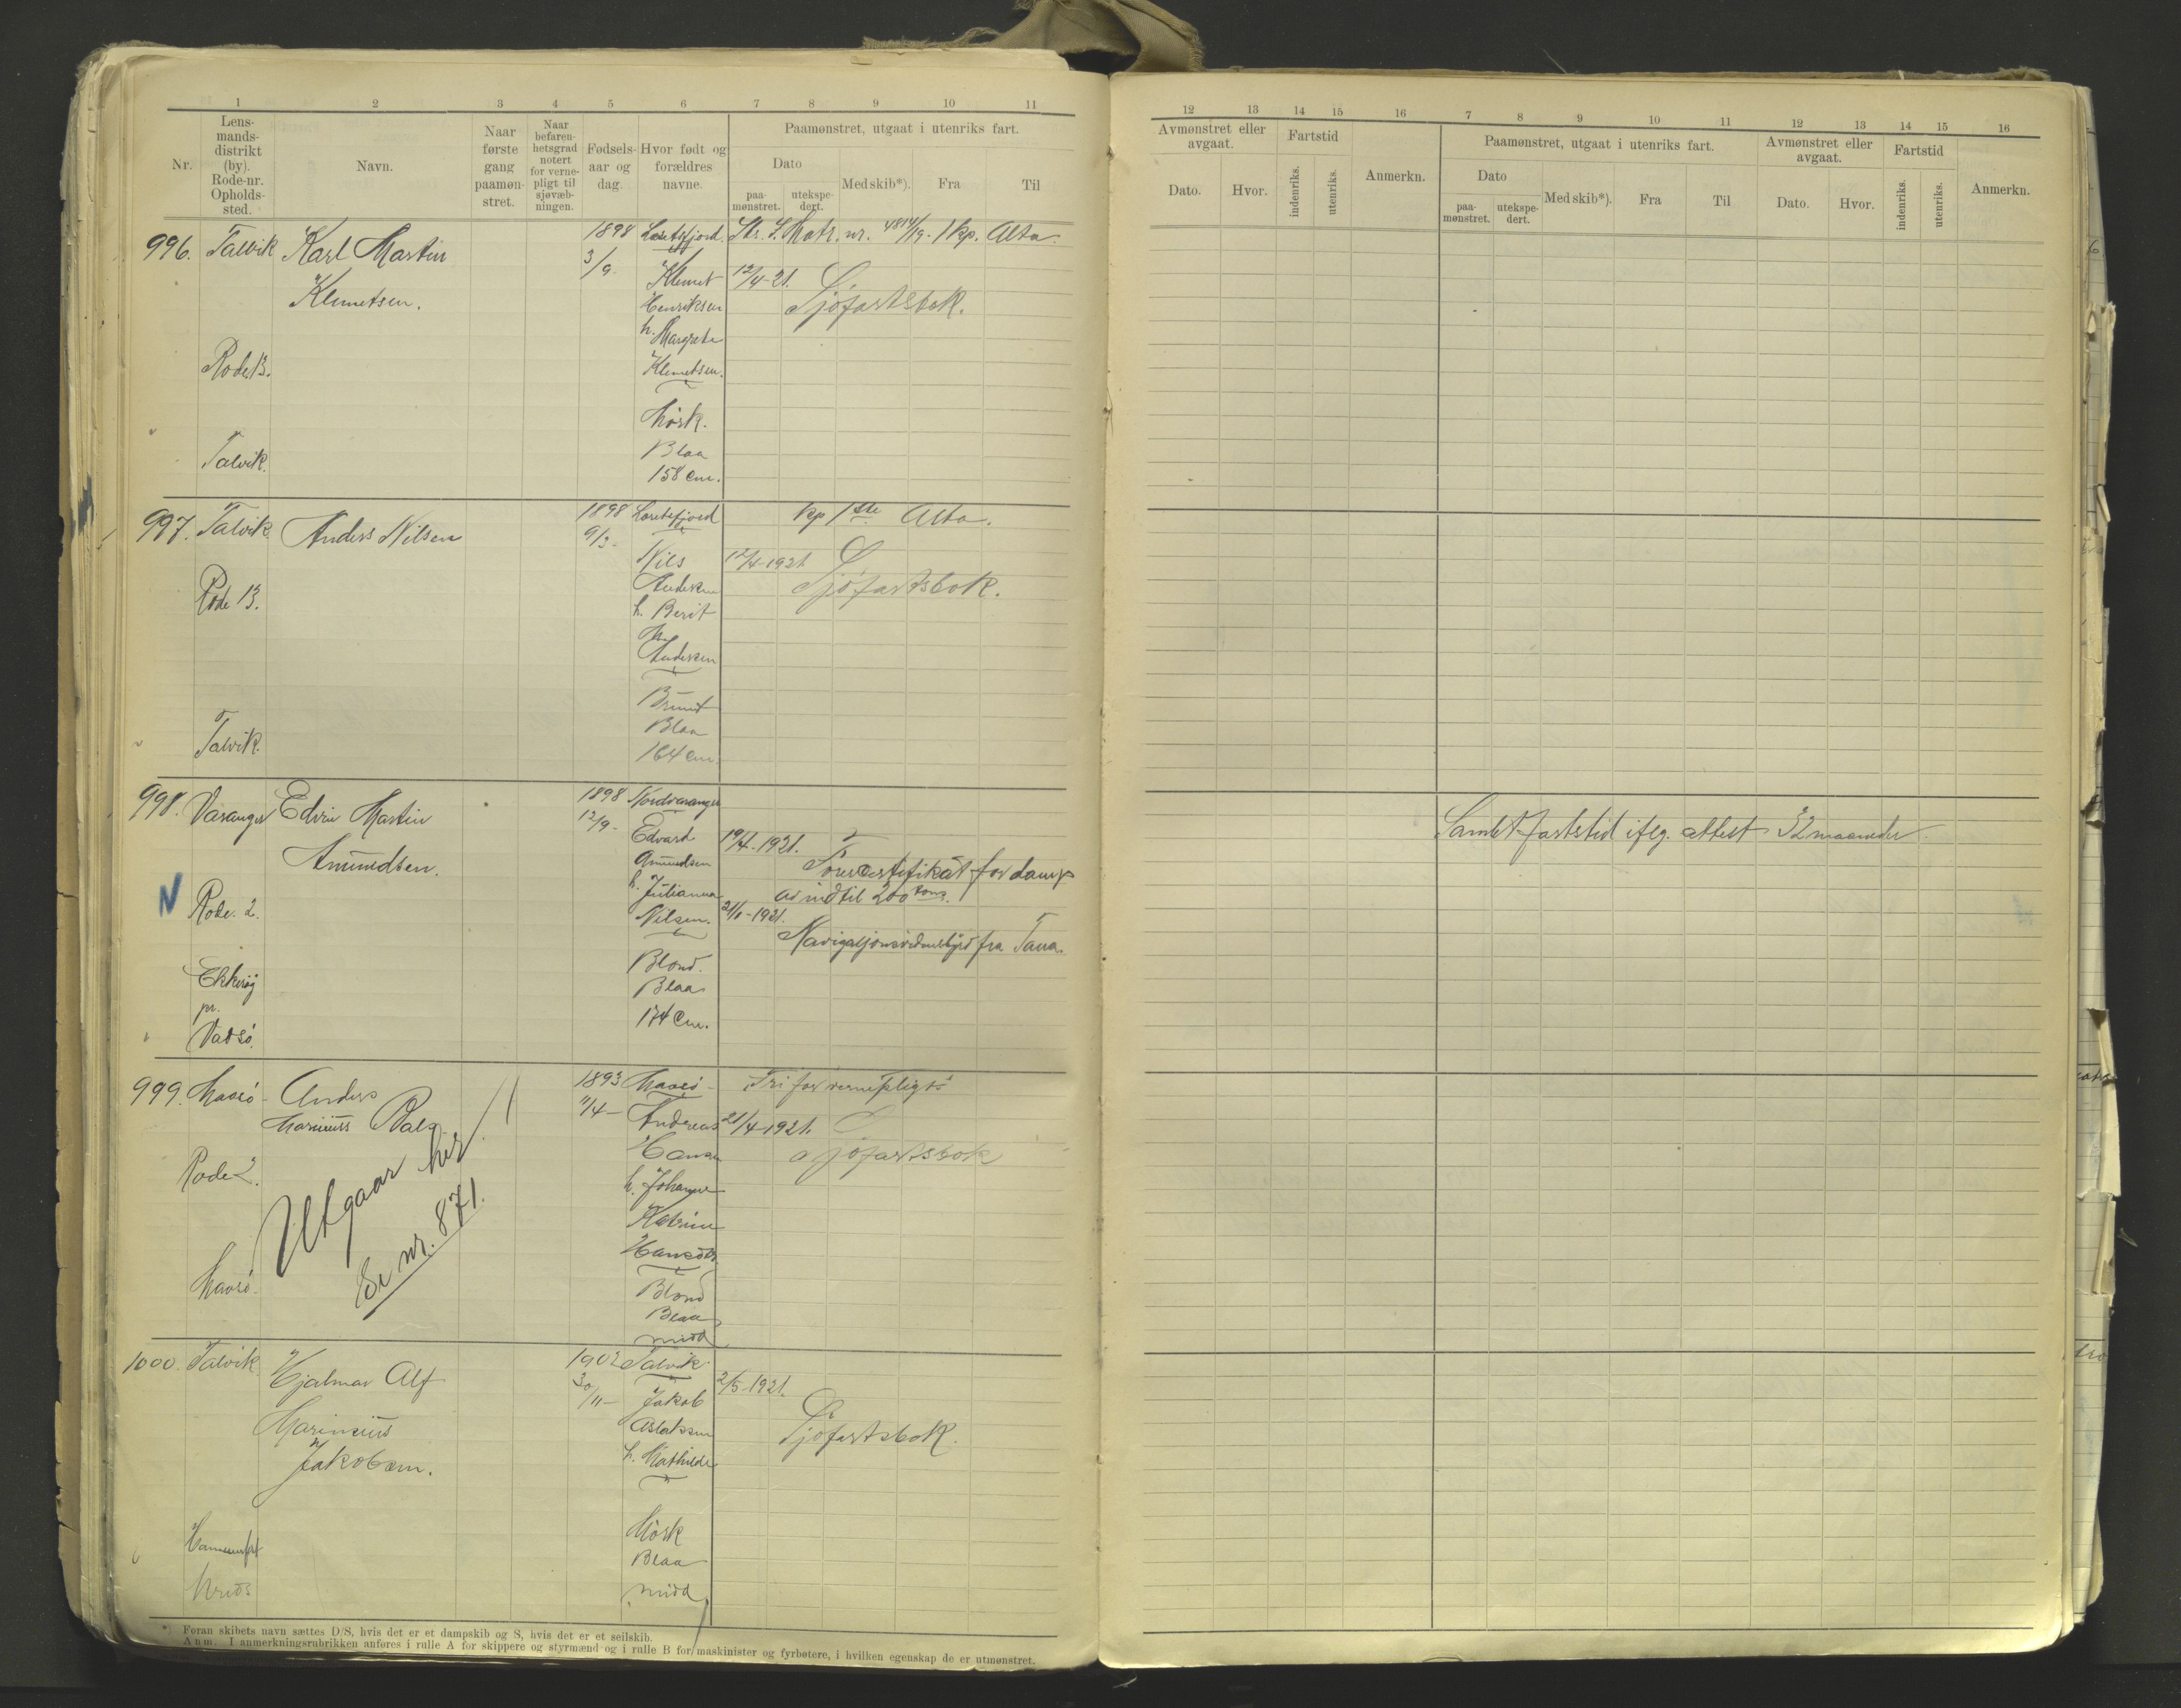 1 2 3 4 5 6 7 8 9 10 11
Nr.
Lens-
mands-
distrikt
(by).
Rode-nr.
Opholds-
sted.
Navn.
Naar
første
gang
paamøn-
stret.
Naar
befaren-
hetsgrad
notert
for verne-
pligt til
sjøvæb-
ningen.
Fødsels-
aar og
dag.
Hvor født og
forældres
navne.
Paamønstret, utgaat i utenriks fart.
Dato
paa-
mønstret.
utekspe-
dert.
Med skib*).
Fra
Til
996. Talvik Karl Martin
Klemetsen.
Rode 13.
Talvik.
1898
3/9.
Klemet
Henriksen
h. Margrete
Klemetsen.
Mørk.
Blaa
158 cm.
Matr. nr. 1 kp. Alta.
12/4-21.
Sjøfartsbok.
997. Talvik Anders Nilsen
Rode 13.
Talvik.
1898
9/3-
Nils
Andersen
h. Berit
Andersen
Brunt
Blaa
164 cm.
kp 1ste Alta.
12/4-1921
Sjøfartsbok.
998. Varanger Edvin Martin
Amundsen.
Rode. 2.
Ekkerøy
pr.
Vadsö.
1898
12/9-
Nordvaranger
Edvard
Amundsen
h. Julianna
Nilsen.
Blond.
Blaa
174 Cm.
19/4-1921.
Førercertifikat for damp
av indtil 200 tons.
1921.
Navigasjonsvidnesbyrd fra Tana.
999. Maasö- Anders
Marinius
Rode 2.
Maasö-
Utgaar her
Se nr. 871.
1893
11/4-
Maasö-
Andreas
Hansen
h. Johanne
Katrine
Blond
Blaa
midd
Fri for vernepligt
21/4-1921.
Sjøfartsbok
1000. Talvik Hjalmar Alf
Marinius
Jakobsen.
Hammerfest
1902
30/11-
Talvik
Jakob
Aslaksen
h. Mathilde
Mørk
Blaa
midd
2/5-1921.
Sjøfartsbok.
*) Foran skibets navn sættes D/S, hvis det er et dampskib og S, hvis det er et seilskib.
Anm. I anmerkningsrubrikken anføres i rulle A for skippere og styrmænd og i rulle B for maskinister og fyrbøtere, i hvilken egenskap de er utmønstret.
12 13 14 15 16 7 8 9 10 11 12 13 14 15 16
Avmønstret eller
avgaat.
Dato.
Hvor.
Fartstid
indenriks.
utenriks.
Anmerkn.
Paamønstret, utgaat i utenriks fart.
Dato
paa-
mønstret.
utekspe-
dert.
Med skib*).
Fra
Til
Avmønstret eller
avgaat.
Dato.
Hvor.
Fartstid
indenriks.
utenriks.
Anmerkn.
Samlet fartstid iflg. attest 32 maaneder